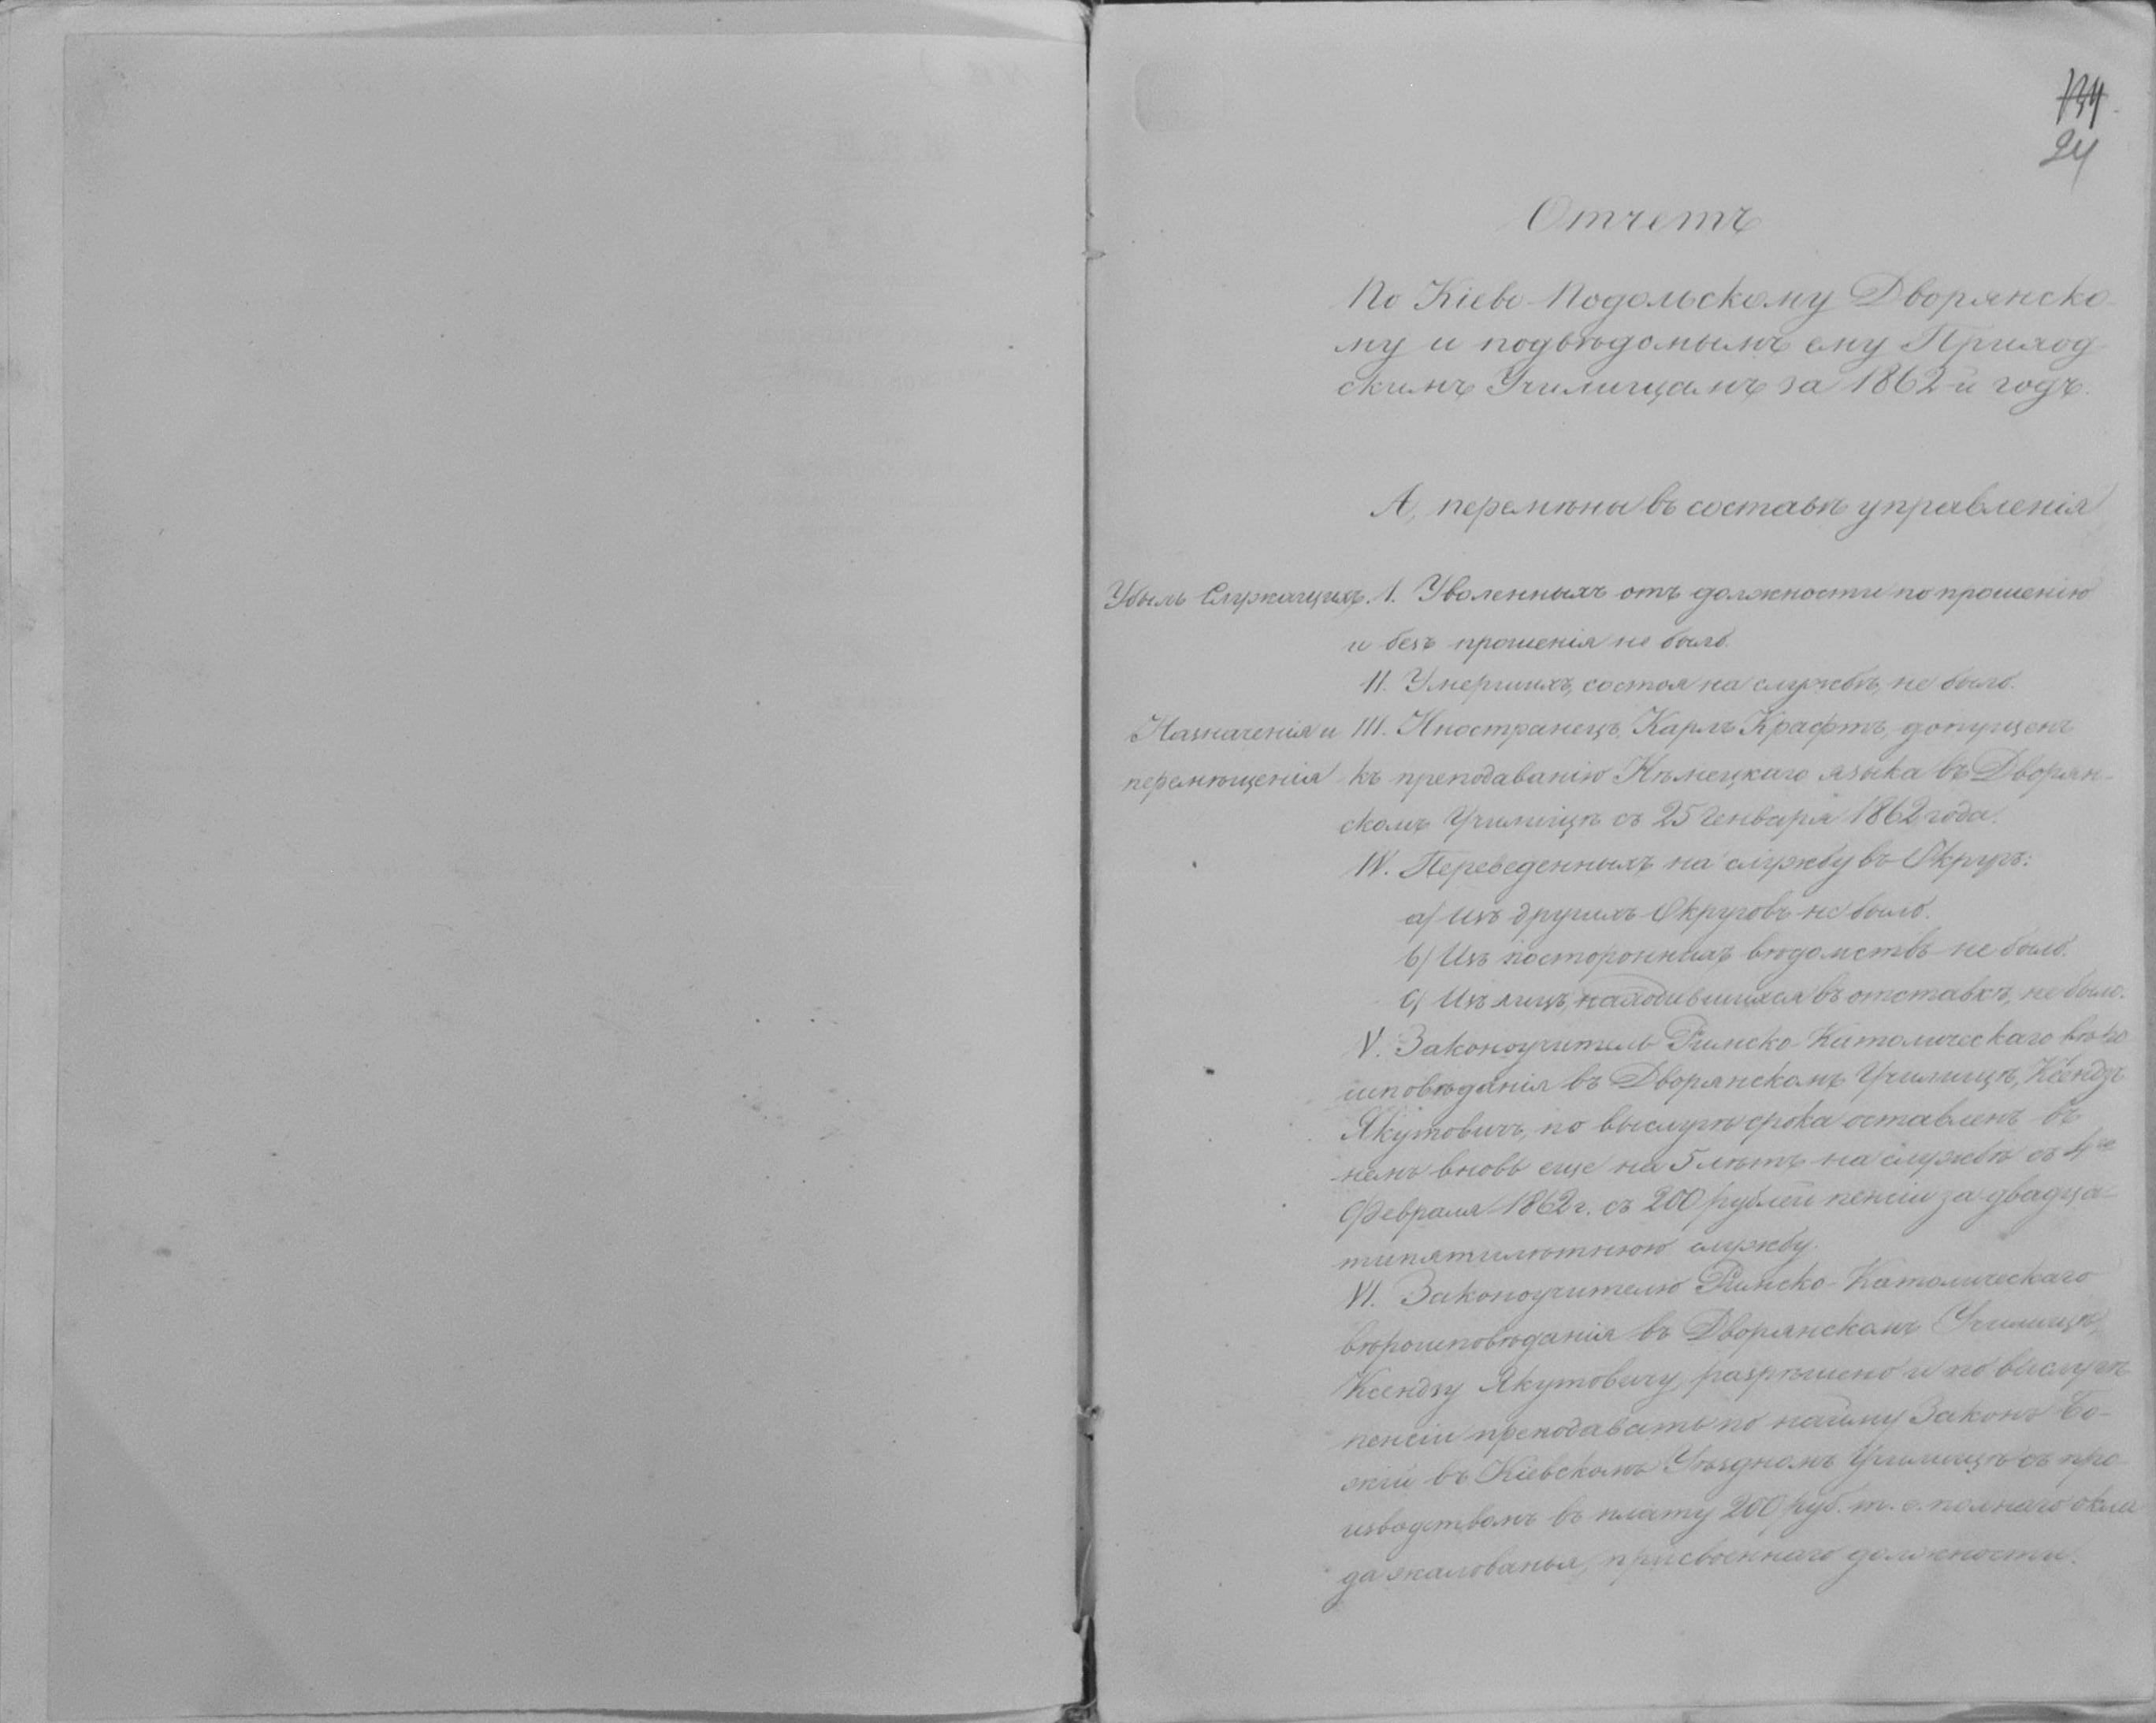 134
24
Отчетъ
По Кіево-Подольскому Дворянско-
му и подвѣдомымъ ему Приход-
скимъ Училищамъ за 1862-й годъ.
А, перемѣны въ составѣ управленія
Убыль Служащихъ. I. Уволенныхъ отъ должности по прошенію
и безъ прошенія не было.
II. Умершихъ, состоя на службѣ, не было.
Назначенія и III. Иностранецъ, Карлъ Крафтъ, допущенъ
перемѣщенія къ преподаванію Нѣмецкаго языка въ Дворян-
скомъ Училищѣ съ 25 Генваря 1862 года.
IV. Переведенныхъ на службу въ Округъ:
а) изъ другихъ Округовъ не было.
b) Изъ постороннихъ вѣдомствъ не было.
c) Изъ лицъ, находившихся въ отставкѣ, не было.
V. Законоучитель Римско-Католическаго вѣро
исповѣданія въ Дворянскомъ Училищѣ, Ксендзъ
Якутовичъ, по выслугѣ срока оставленъ въ
немъ вновь еще на 5 лѣтъ на службѣ съ 4го
Февраля 1862 г. съ 200 рублей пенсіи за двадца-
типятилѣтнюю службу.
VI. Законоучителю Римско-Католическаго
вѣроисповѣданія въ Дворянскомъ Училищѣ,
Ксендзу Якутовичу, разрѣшено и по выслугѣ
пенсіи преподавать по найму Законъ Бо-
жій въ Кіевскомъ Уѣздномъ Училищѣ съ про-
изводствомъ въ плату 200 руб. т. е. полнаго окла
да жалованья, присвоеннаго должности.